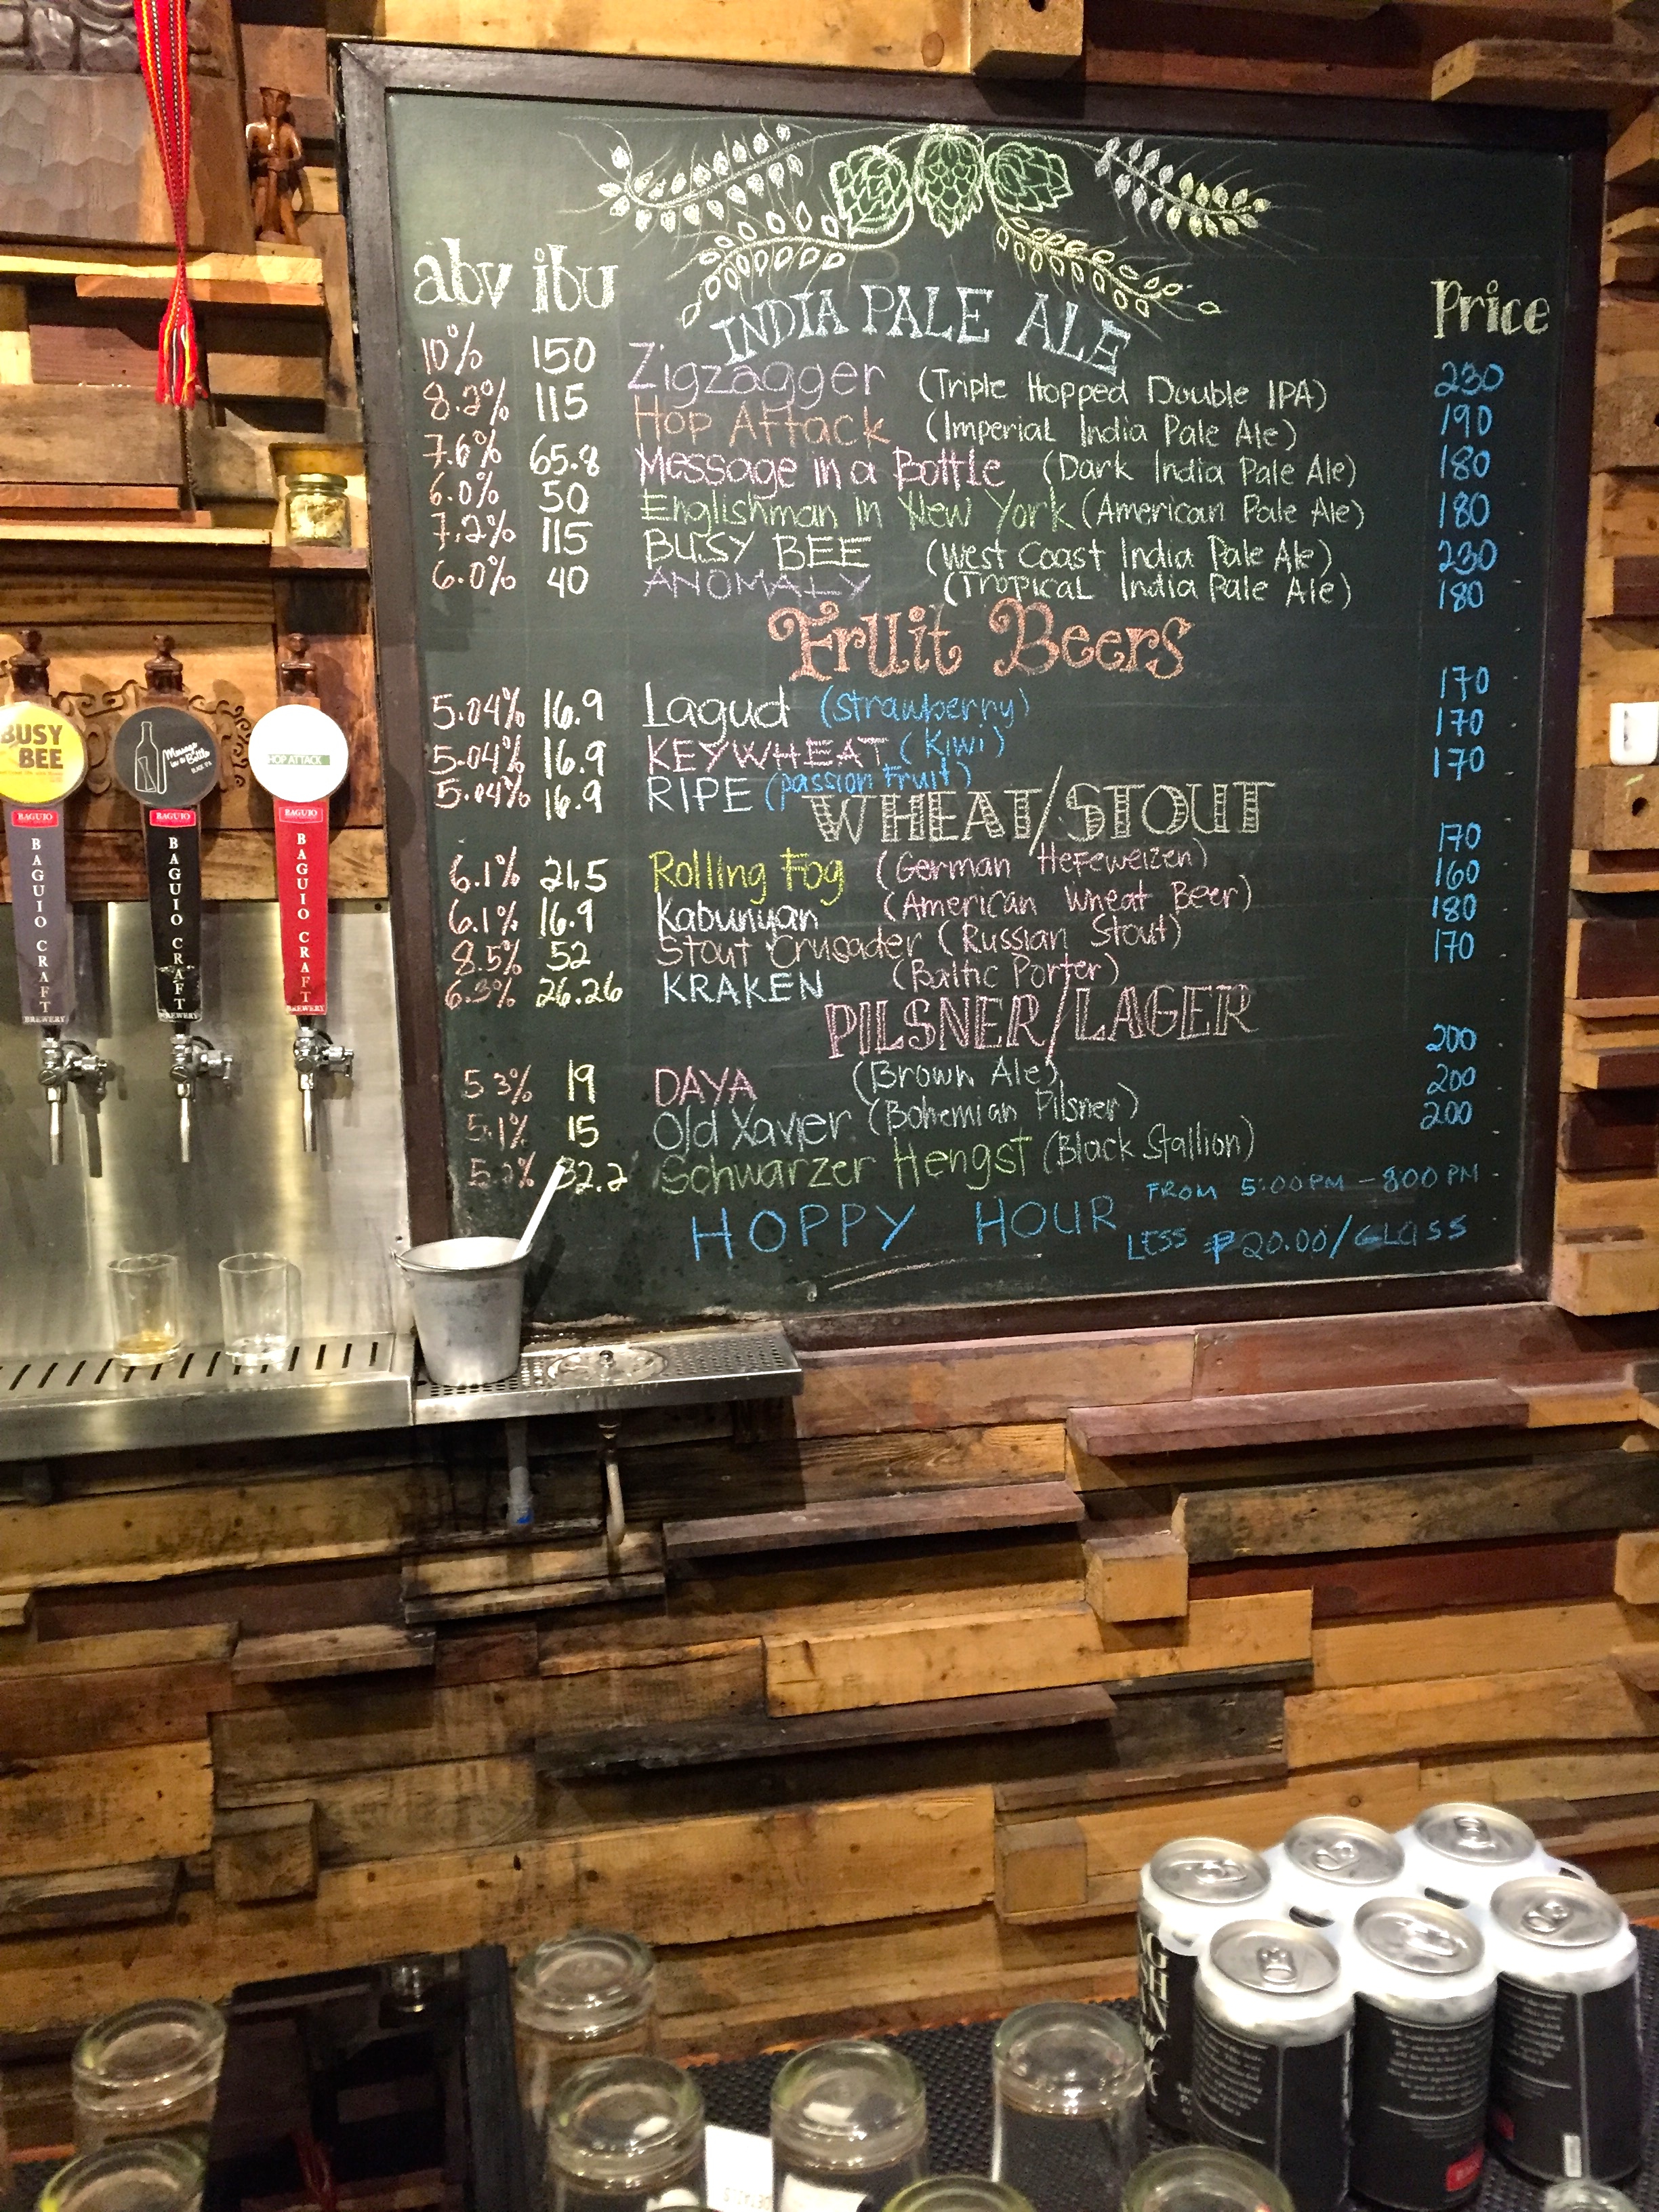 abv ibu Price
INDIA PALE ALE
10% 150 Zigzagger (Triple Hopped Double IPA) 230
8.2% 115 Hop Attack (Imperial India Pale Ale) 190
7.6% 65.8 Message in a Bottle (Dark India Pale Ale) 180
6.0% 50 Englishman in New York (American Pale Ale) 180
7.2% 115 BUSY BEE (West Coast India Pale Ale) 230
6.0% 40 ANOMALY (Tropical India Pale Ale) 180
Fruit Beers
5.04% 16.9 Lagud (strawberry) 170
5.04% 16.9 KEYWHEAT (Kiwi) 170
5.04% 16.9 RIPE (passion Fruit) 170
WHEAT/STOUT
6.1% 21.5 Rolling Fog (German Hefeweizen) 170
6.1% 16.9 Kabunyan (American Wheat Beer) 160
8.5% 52 Stout Crusader (Russian Stout) 180
6.3% 26.26 KRAKEN (Baltic Porter) 170
PILSNER/LAGER
5.3% 19 DAYA (Brown Ale) 200
5.1% 15 Old Xavier (Bohemian Pilsner) 200
5.2% 32.2 Schwarzer Hengst (Black Stallion) 200
HOPPY HOUR FROM 5:00PM - 8:00 PM
LESS ₱20.00/GLASS
BUSY
BEE
BAGUIO
BAGUIO CRAFT
BREWERY
Message
in a Bottle
BLACK IPA
BAGUIO
BAGUIO CRAFT
BREWERY
HOP ATTACK
BAGUIO
BAGUIO CRAFT
BREWERY